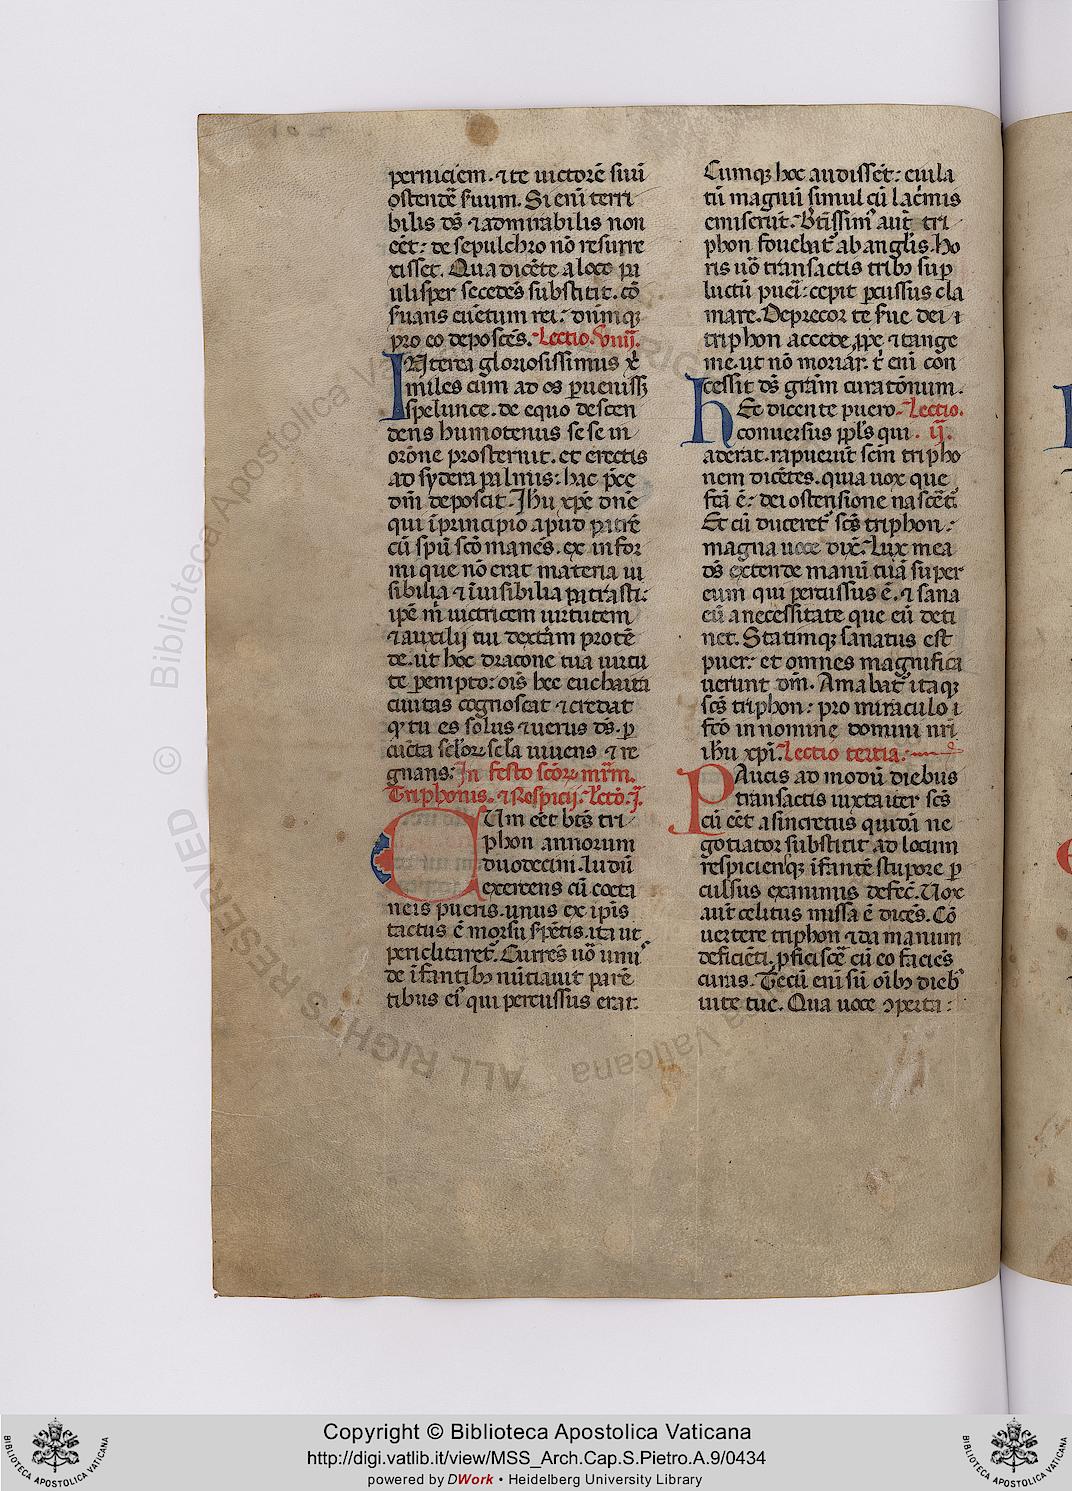 perniciem. ⁊ te uictorē siui
ostendē suum. Si eni᷑ terri
bilis ds̄ ⁊ admirabilis non
eēt: de sepulchro nō resurre
xisset. Qua dicēte a loco pa
ulisper secedēs substitit. cō
suans euētum rei: dūmqꝫ
pro eo deposcēs. Lectio. viiij.
INterea gloriosissimus xp̄i
miles cum ad os puenissꝫ
spelunce. de equo descen
dens humotenus se se in
orōne prosternit. et erectis
ad sydera palmis: hac p̄ce
dm̄ deposcit. Ihu xp̄e dn̄e
qui ī principio apud patrē
cū spū scō manēs. ex infor
mi que nō erat materia ui
sibilia ⁊ īuisibilia patrasti:
ip̄e m̄ uictricem uirtutem
⁊ auxilij tui dextām protē
de. ut hoc dracone tua uirtu
te pempto: ois̄ hec euchaita
ciuitas cognoscat ⁊ credat
qꝫ tu es solus ⁊ uerus ds̄. p
cūcta sclōꝝ scl̄a uiuens ⁊ re
gnans. In festo scōꝝ mr̄m.
Triphonis. ⁊ Respicij. Lctō. j.
CUm eēt bts̄ tri
phon annorum
duodecim. ludū
exercens cū coeta
neis pueris. unus ex ip̄is
tactus ē morsu spētis. ita ut
periclitaret᷑. Currēs uō unus
de īfantibꝫ nūtiauit parē
tibus ei᷑ qui percussus erat.
Cumqꝫ hoc audissēt: eiula
tū magnū simul cū lacīmis
emiserūt. Btīssim᷑ aut̄ tri
phon fouebat᷑ ab angl̄is. Ho
ris uō transactis tribꝫ sup
luctū pueī: cepit pcussus cla
mare. Deprecor te sue dei ⁊
triphon accede ppe ⁊ tange
me. ut nō moriar. t᷑ eni᷑ con
cessit ds̄ grām curatōnum.
HEc dicente puero. Lectio.
conuersus ppl̄s qui . ij.
aderat. rapuerūt scm̄ tripho
nem dicētes. quia uox que
fcā ē: dei ostensione nascēt᷑.
Et cū duceret᷑ scs̄ triphon:
magna uoce dix̄. Lux mea
ds̄ extende manū tuā super
eum qui percussus ē. ⁊ sana
eū a necessitate que eū deti
net. Statimqꝫ sanatus est
puer: et omnes magnifica
uerunt dm̄. Amabat᷑ itaqꝫ
scs̄ triphon: pro miraculo ī
fcō in nomine domini nr̄i
ihu xp̄i. Lectio tertia.
PAucis ad modū diebus
transactis iuxta iter scs̄
cū eēt asincretus quidā ne
gotiator substitit ad locum
respiciensqꝫ īfantē stupore p
culsus exanimis defec̄. Uox
aut̄ celitus missa ē dicēs. Cō
uertere triphon ⁊ da manum
deficiēti. pficiscē cū eo faciēs
curas. Tecū eni᷑ sū oībꝫ dieb᷑
uite tue. Qua uoce ɔperta:
Copyright © Biblioteca Apostolica Vaticana
http://digi.vatlib.it/view/MSS_Arch.Cap.S.Pietro.A.9/0434
powered by DWork • Heidelberg University Library
BIBLIOTECA APOSTOLICA VATICANA
BIBLIOTECA APOSTOLICA VATICANA
© Biblioteca Apostolica Vaticana
ALL RIGHTS RESERVED